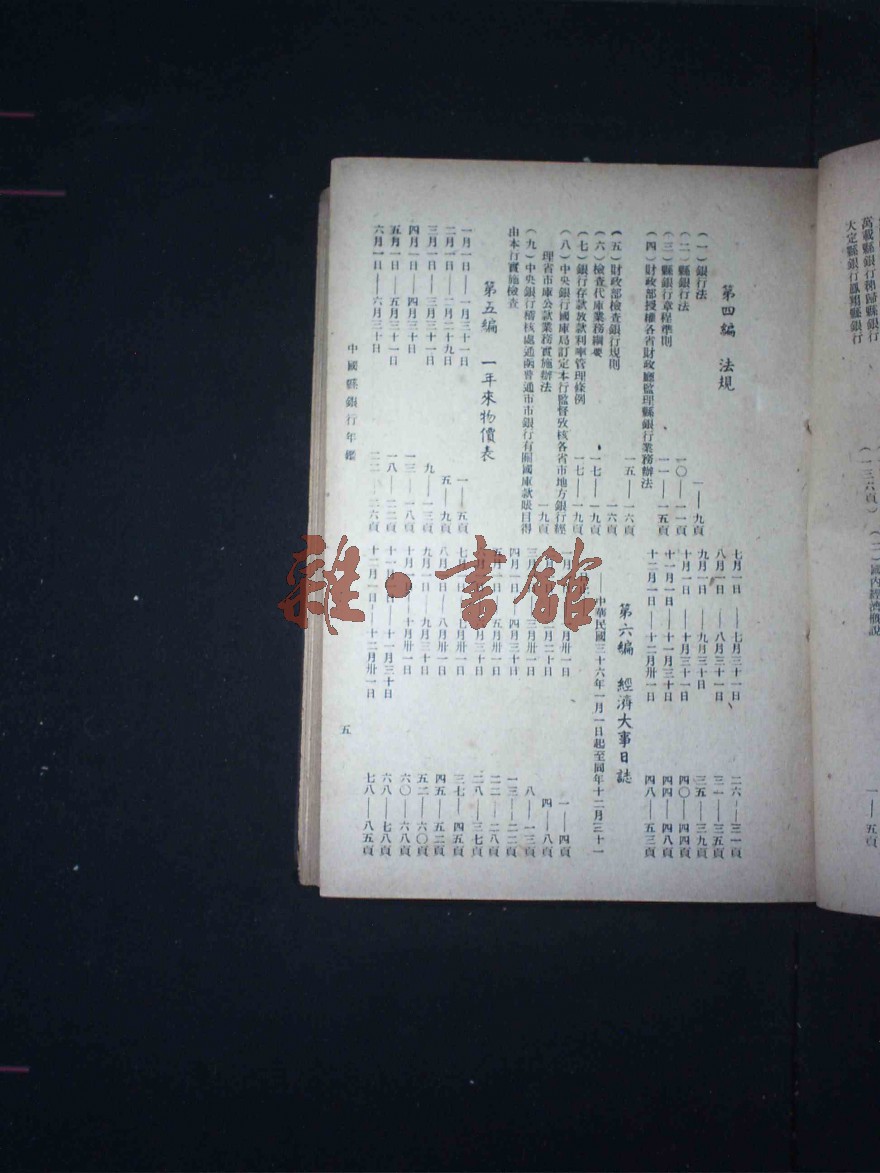 第四編 法規
（一）銀行法 一——九頁
（二）縣銀行法 一〇——一一頁
（三）縣銀行章程準則 一一——一五頁
（四）財政部授權各省財政廳監理縣銀行業務辦法
一五——一六頁
（五）財政部檢查銀行規則 一六頁
（六）檢查代庫業務綱要 一七——一九頁
（七）銀行存款放款利率管理條例 一七——一九頁
（八）中央銀行國庫局訂定本行監督攷核各省市地方銀行經
理省市庫公款業務實施辦法 一九頁
（九）中央銀行稽核處通函普通市市銀行有關國庫款賬目得
由本行實施檢查
第五編 一年來物價表
一月一日——一月三十一日 一——五頁
二月一日——二月二十九日 五——九頁
三月一日——三月三十一日 九——一三頁
四月一日——四月三十日 一三——一八頁
五月一日——五月三十一日 一八——二二頁
六月一日——六月三十日 二二——二六頁
七月一日——七月三十一日 二六——三一頁
八月一日——八月三十一日 三一——三五頁
九月一日——九月三十日 三五——三九頁
十月一日——十月三十一日 四〇——四四頁
十一月一日——十一月三十日 四四——四八頁
十二月一日——十二月卅一日 四八——五三頁
第六編 經濟大事日誌
——中華民國三十六年一月一日起至同年十二月三十一
一月一 月卅一日 一——四頁
月二十日 四——八頁
三月 三月卅一日 八——一三頁
四月一日 四月三十日 一三——二二頁
五月 五月卅一日 二二——二八頁
月三十日 二八——三七頁
七月 七月卅一日 三七——四五頁
八月一日——八月卅一日 四五——五二頁
九月一日——九月三十日 五二——六〇頁
十月一日——十月卅一日 六〇——六八頁
十一月一日——十一月三十日 六八——七八頁
十二月一日——十二月卅一日 七八——八五頁
中國縣銀行年鑑
五
萬載縣銀行秭歸縣銀行
大定縣銀行鳳翔縣銀行
（一三六頁）（二）國內經濟概說
一——五頁
雜·書館